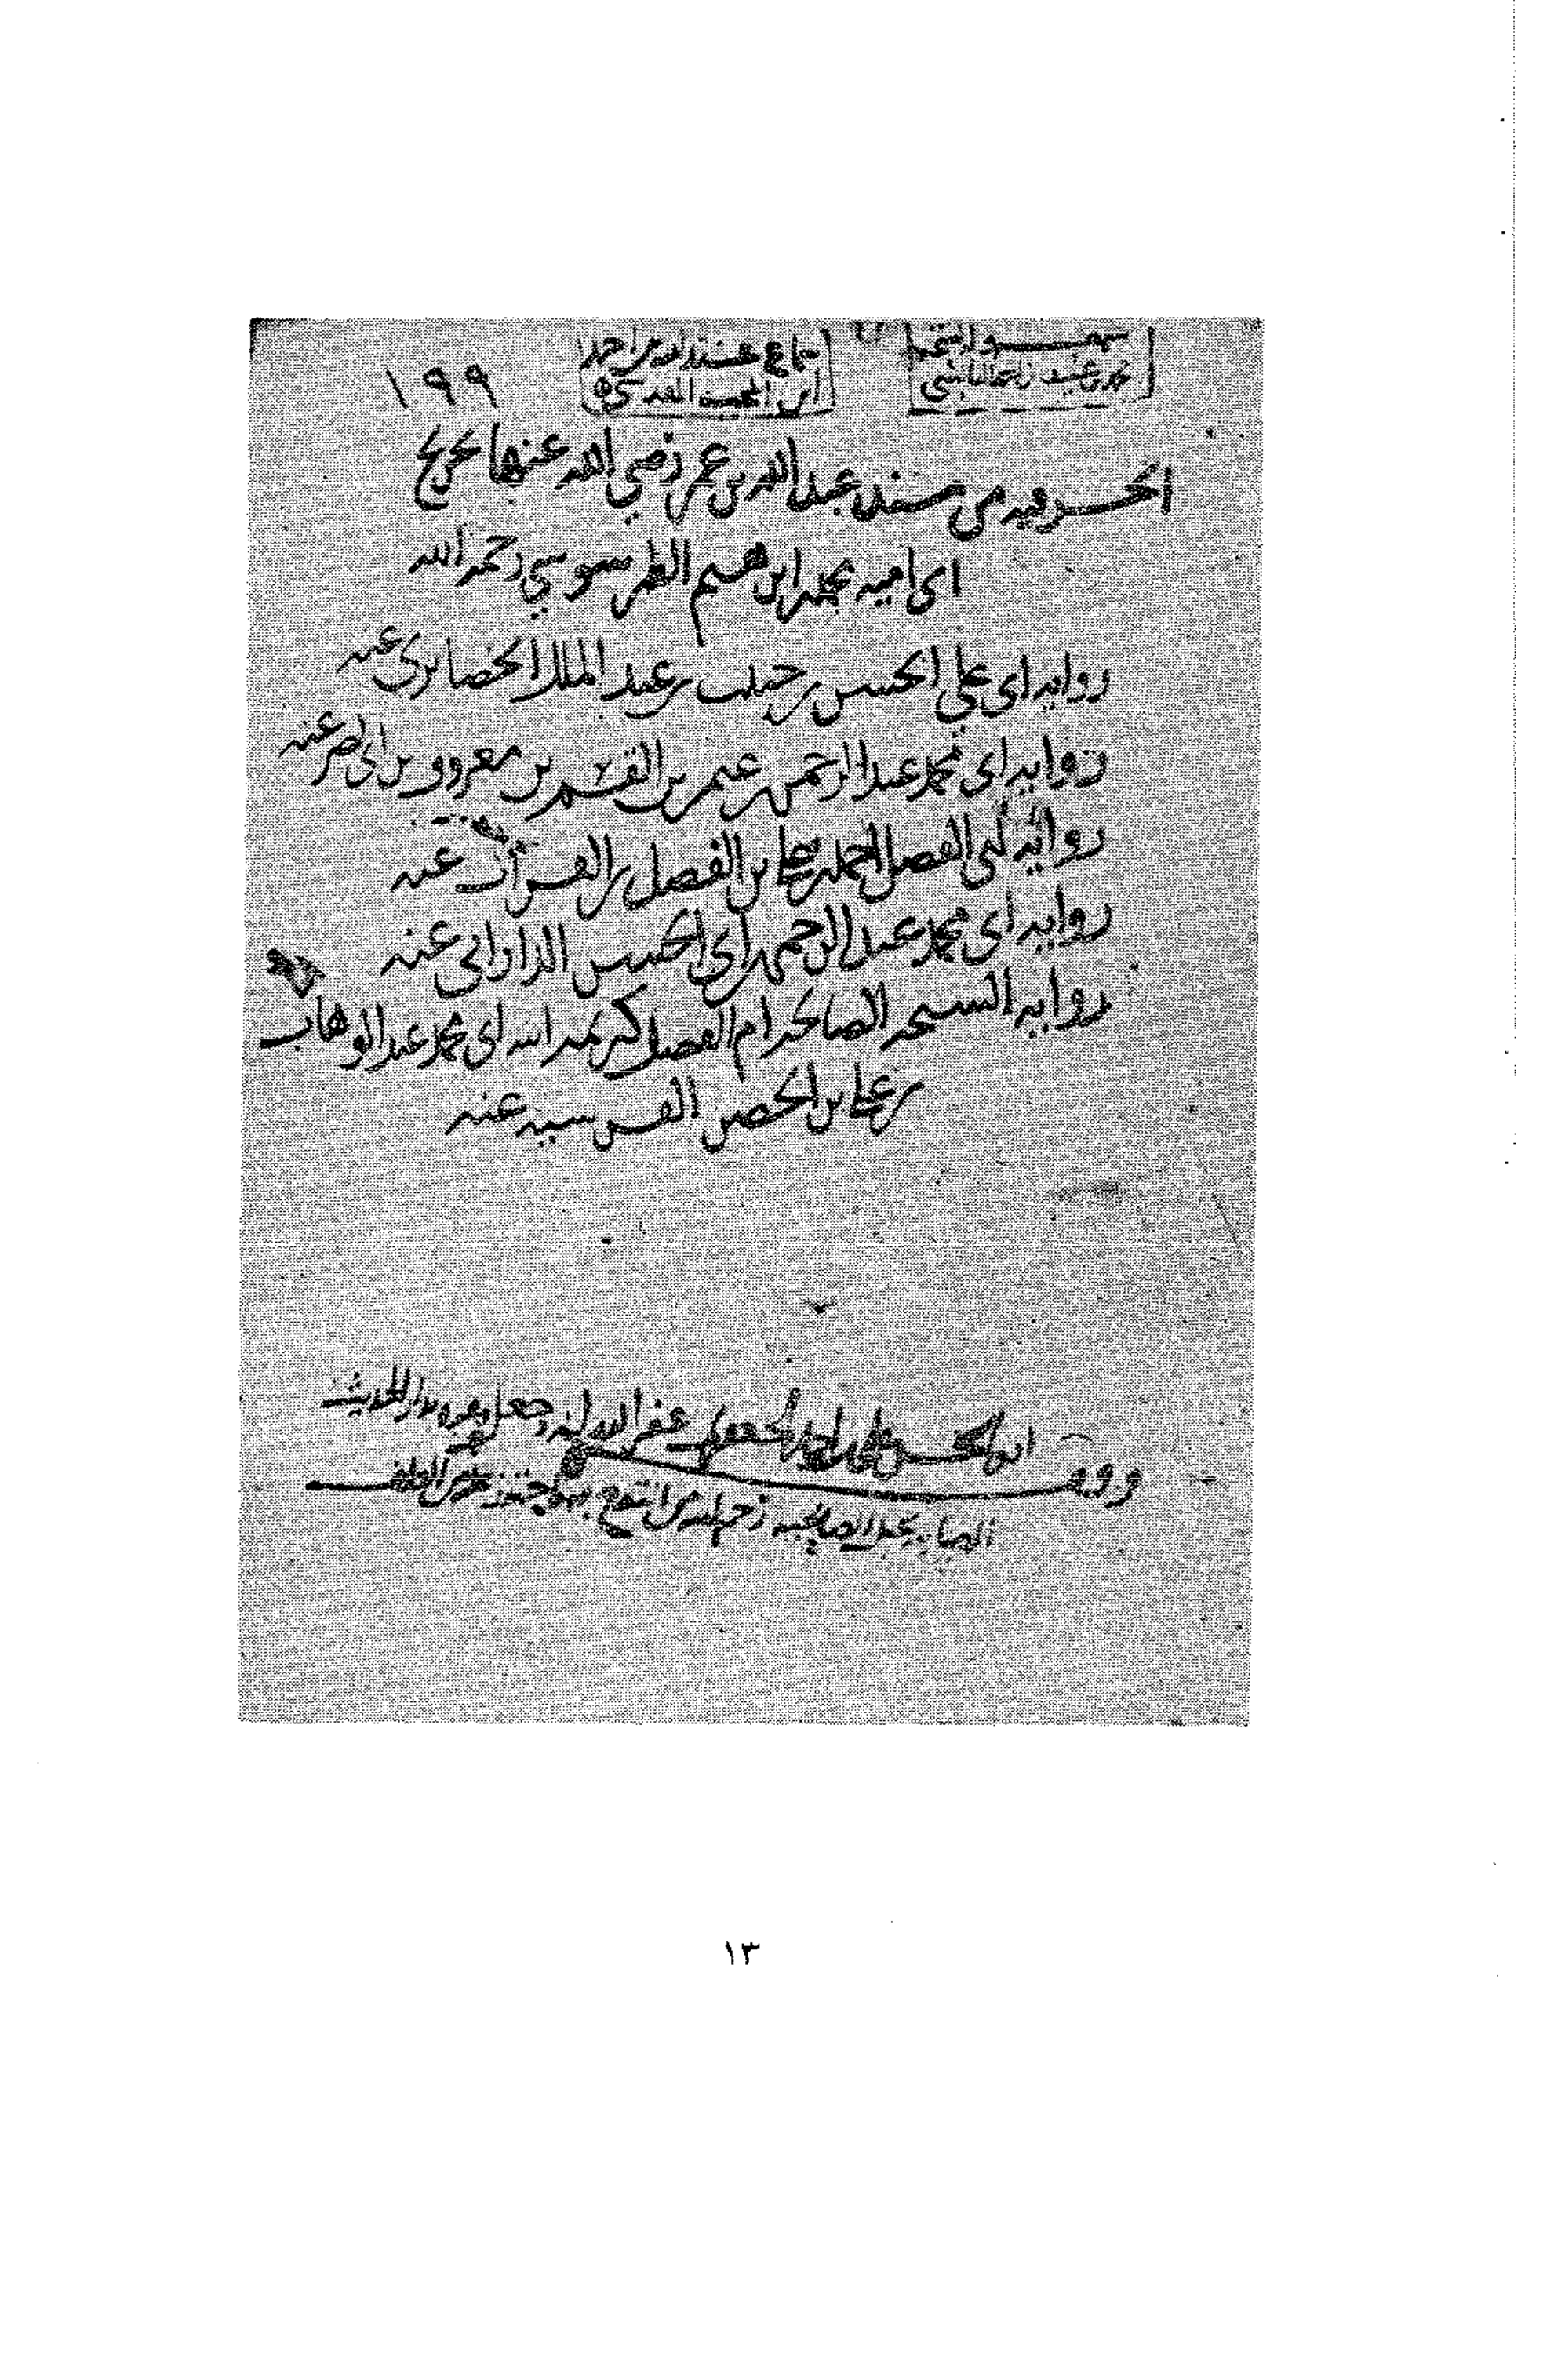 سماع عبد الله بن احمد
ابن المحب المقدسي
١٩٩
الجزء فيه من مسند عبد الله بن عمر رضي الله عنهما تخريج
ابي امية محمد بن ابرهيم الطرسوسي رحمه الله
رواية ابي علي الحسن بن حبيب بن عبد الملك الحصايري عنه
رواية ابي محمد عبد الرحمن بن عثمن بن القسم بن معروف بن ابي نصر عنه
رواية ابي الفضل احمد بن علي بن الفضل بن الفرات عنه
رواية ابي محمد عبد الرحمن بن ابي الحسن الداراني عنه
رواية الشيخة الصالحة ام الفضل كريمة ابنة ابي محمد عبد الوهاب
بن علي بن الخضر القرشية عنه
وقف
علي بن غفر الله له وجعل مقره بدار الحديث
الضيائية بجبل الصالحية رحم الله من انتفع به
١٣